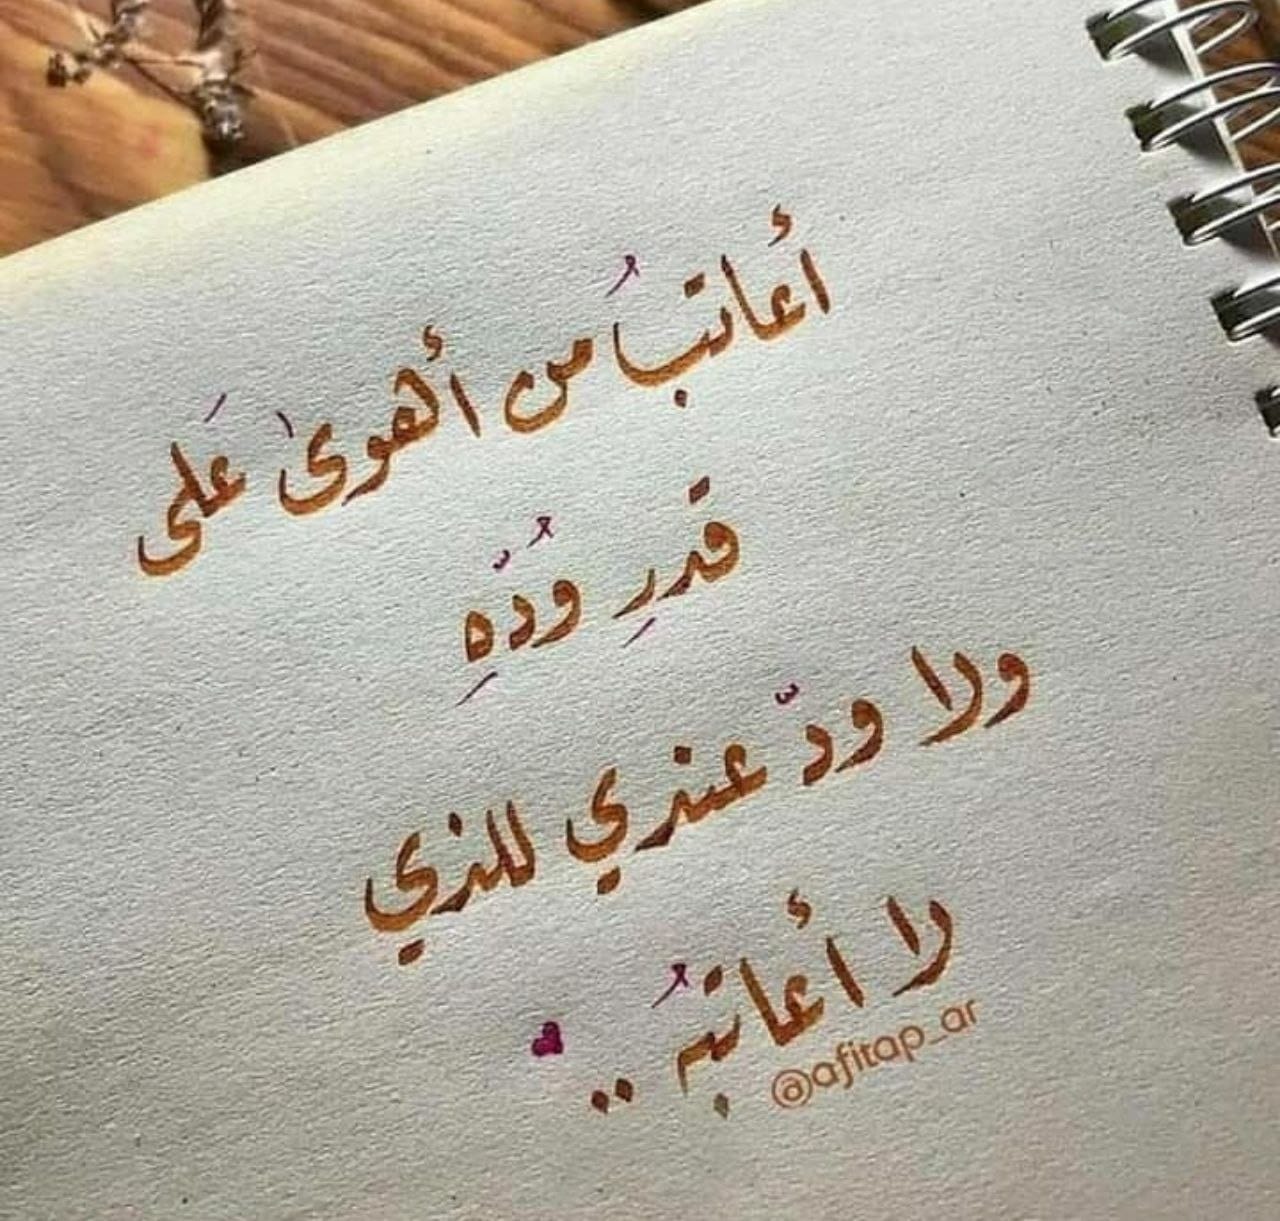 أعاتبُ من أهوىٰ عَلى
قدرِ وُدّهِ
ولا ودّ عندي للذي
لا أعاتبهُ ..
@afitap_ar